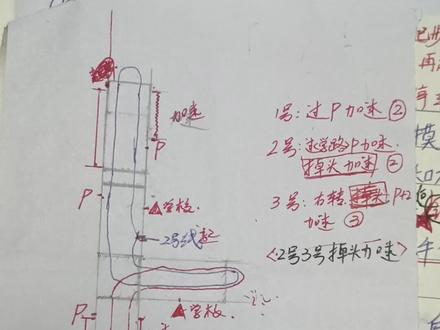 加速
P
P
学校
2号线起
学校
P
1号:过P加速②
2号:过学路P加速
掉头加速②
3号:右转 P+2
加速③
<2号3号掉头加速>
再
模
手